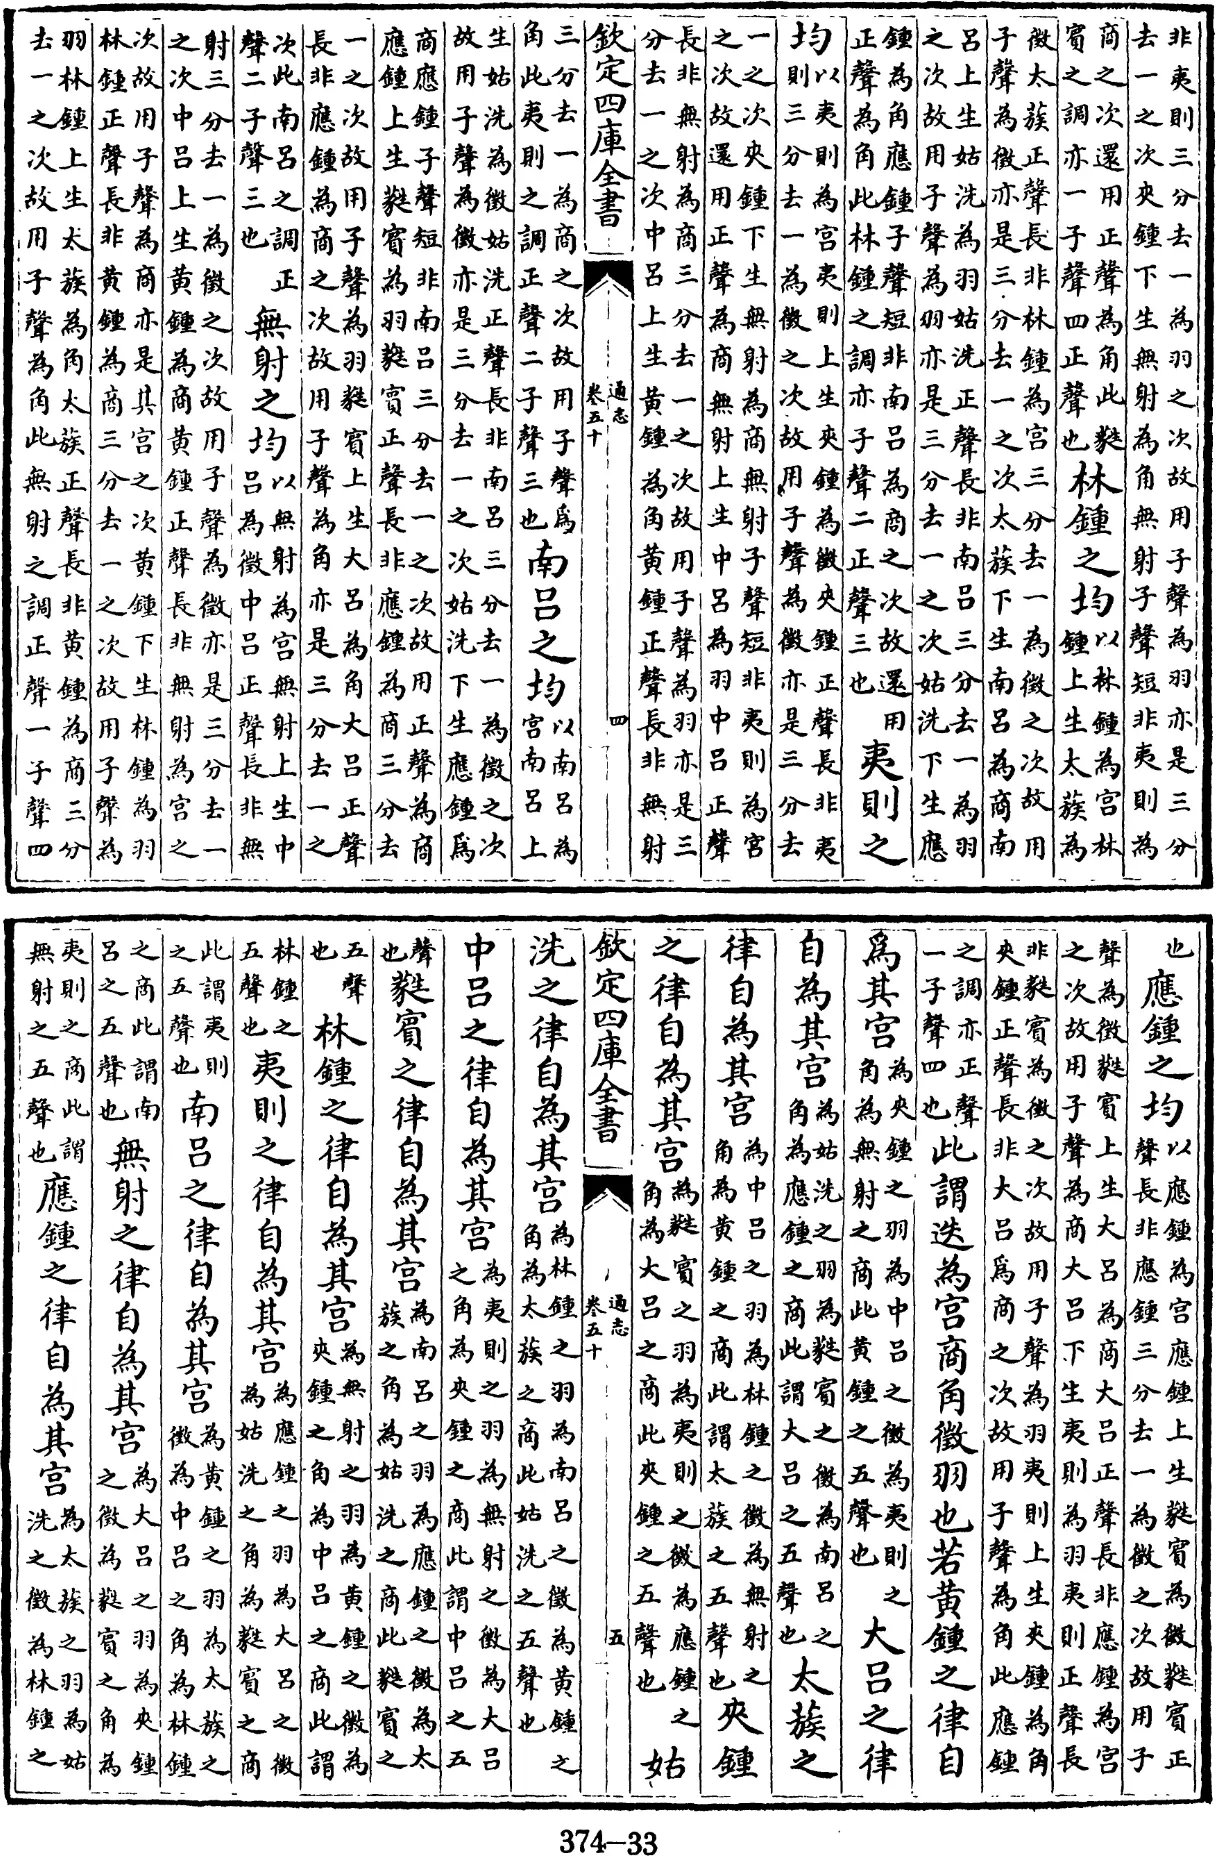 非夷則三分去一為羽之次故用子聲為羽亦是三分
去一之次夾鍾下生無射為角無射子聲短非夷則為
商之次還用正聲為角此蕤賓之調亦一子聲四正聲也林鍾之均以林鍾為宮林鍾上生太蔟為
徵太蔟正聲長非林鍾為宮三分去一為徵之次故用
子聲為徵亦是三分去一之次太蔟下生南呂為商南
呂上生姑洗為羽姑洗正聲長非南呂三分去一為羽
之次故用子聲為羽亦是三分去一之次姑洗下生應
鍾為角應鍾子聲短非南呂為商之次故還用正聲為角此林鍾之調亦子聲二正聲三也夷則之
均以夷則為宮夷則上生夾鍾為徵夾鍾正聲長非夷則三分去一為徵之次故用子聲為徵亦是三分去
一之次夾鍾下生無射為商無射子聲短非夷則為宮
之次故還用正聲為商無射上生中呂為羽中呂正聲
長非無射為商三分去一之次故用子聲為羽亦是三
分去一之次中呂上生黃鍾為角黃鍾正聲長非無射
欽定四庫全書 通志 卷五十 四
三分去一為商之次故用子聲爲角此夷則之調正聲二子聲三也南呂之均以南呂為宮南呂上
生姑洗為徵姑洗正聲長非南呂三分去一為徵之次
故用子聲為徵亦是三分去一之次姑洗下生應鍾爲
商應鍾子聲短非南呂三分去一之次故用正聲為商
應鍾上生蕤賓為羽蕤賓正聲長非應鍾為商三分去
一之次故用子聲為羽蕤賓上生大呂為角大呂正聲
長非應鍾為商之次故用子聲為角亦是三分去一之
次此南呂之調正聲二子聲三也無射之均以無射為宮無射上生中呂為徵中呂正聲長非無
射三分去一為徵之次故用子聲為徵亦是三分去一
之次中呂上生黃鍾為商黃鍾正聲長非無射為宮之
次故用子聲為商亦是其宮之次黃鍾下生林鍾為羽
林鍾正聲長非黃鍾為商三分去一之次故用子聲為
羽林鍾上生太蔟為角太蔟正聲長非黃鍾為商三分
去一之次故用子聲為角此無射之調正聲一子聲四
也應鍾之均以應鍾為宮應鍾上生蕤賓為徵蕤賓正聲長非應鍾三分去一為徵之次故用子
聲為徵蕤賓上生大呂為商大呂正聲長非應鍾為宮
之次故用子聲為商大呂下生夷則為羽夷則正聲長
非蕤賓為徵之次故用子聲為羽夷則上生夾鍾為角
夾鍾正聲長非大呂爲商之次故用子聲為角此應鍾
之調亦正聲一子聲四也此謂迭為宮商角徵羽也若黃鍾之律自
爲其宮為夾鍾之羽為中呂之徵為夷則之角為無射之商此黃鍾之五聲也大呂之律
自為其宮為姑洗之羽為蕤賓之徵為南呂之角為應鍾之商此謂大呂之五聲也太蔟之
律自為其宮為中呂之羽為林鍾之徵為無射之角為黃鍾之商此謂太蔟之五聲也夾鍾
之律自為其宮為蕤賓之羽為夷則之徵為應鍾之角為大呂之商此夾鍾之五聲也姑
欽定四庫全書 通志 卷五十 五
洗之律自為其宮為林鍾之羽為南呂之徵為黃鍾之角為太蔟之商此姑洗之五聲也
中呂之律自為其宮為夷則之羽為無射之徵為大呂之角為夾鍾之商此謂中呂之五
聲也蕤賓之律自為其宮為南呂之羽為應鍾之徵為太蔟之角為姑洗之商此蕤賓之
五聲也林鍾之律自為其宮為無射之羽為黃鍾之徵為夾鍾之角為中呂之商此謂
林鍾之五聲也夷則之律自為其宮為應鍾之羽為大呂之徵為姑洗之角為蕤賓之商
此謂夷則之五聲也南呂之律自為其宮為黃鍾之羽為太蔟之徵為中呂之角為林鍾
之商此謂南呂之五聲也無射之律自為其宮為大呂之羽為夾鍾之徵為蕤賓之角為
夷則之商此謂無射之五聲也應鍾之律自為其宮為太蔟之羽為姑洗之徵為林鍾之
374-33